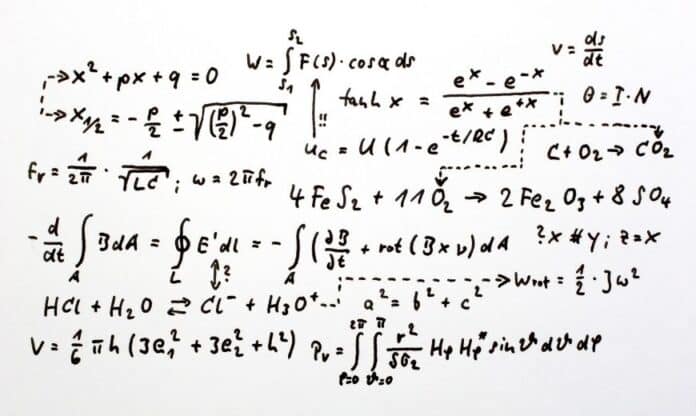 x² + px + q = 0
W = ∫_{S₁}^{S₂} F(s) · cosα ds
v = ds/dt
x₁/₂ = - p/2 ± √((p/2)² - q)
!!
tanh x = (eˣ - e⁻ˣ)/(eˣ + e⁺ˣ)
Θ = I · N
u_C = U (1 - e^{-t/RC})
C + O₂ → CO₂
f_r = 1/2π · 1/√LC ; ω = 2πf_r
4 FeS₂ + 11 O₂ → 2 Fe₂O₃ + 8 SO₄
- d/dt ∫_A B dA = ∮_L E' dl = - ∫_A (∂B/∂t + rot (B x v) dA
?x # y ; z = x
?
W_rot = 1/2 · Jω²
HCl + H₂O ⇄ Cl⁻ + H₃O⁺...
a² = b² + c²
V = 1/6 πh (3e₁² + 3e₂² + h²)
P_v = ∫_{φ=0}^{2π} ∫_{ϑ=0}^{π} H_φ H_φ* sin ϑ dϑ dφ